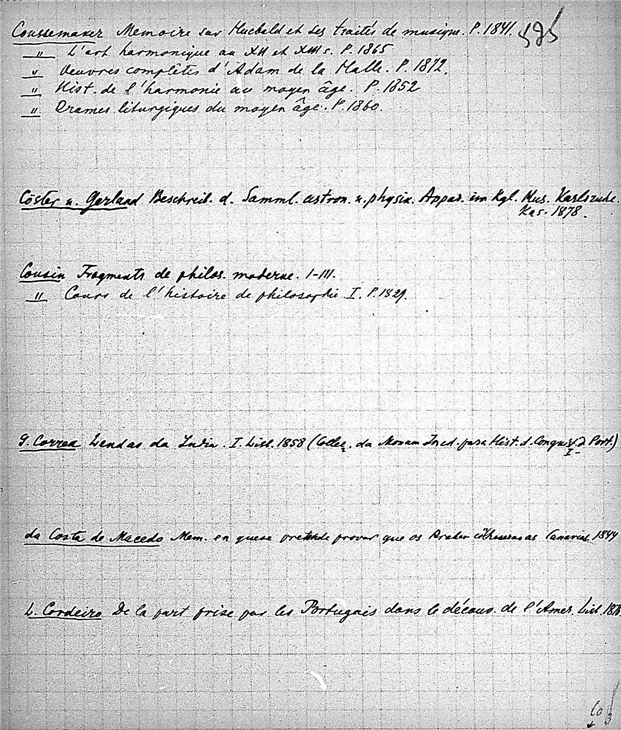 Coussemaker Memoire sur Hucbald et ses traités de musique. P. 1841. 595
" L'art harmonique au XII et XIII s. P. 1865
" Oeuvres complètes d'Adam de la Halle. P. 1872.
" Hist. de l'harmonie au moyen âge. P. 1852
" Drames liturgiques du moyen âge. P. 1860.
Cöster u. Gerland Beschreib. d. Samml. astron. u. physik. Appar. im Kgl. Mus. Karlsruhe.
Kas. 1878.
Cousin Fragments de philos. moderne. I-III.
" Cours de l'histoire de philosophie I. P. 1829.
G. Correa Lendas da India. I. Liss. 1858 (Collec. da Monum Ined. para Hist. d. Conquist. d Port.)
I-
da Costa de Macedo Mem. em que se pretende provar que os Arabes as Canarias 1844
L. Cordeiro De la part prise par les Portugais dans le découv. de l'Amer. Liss.